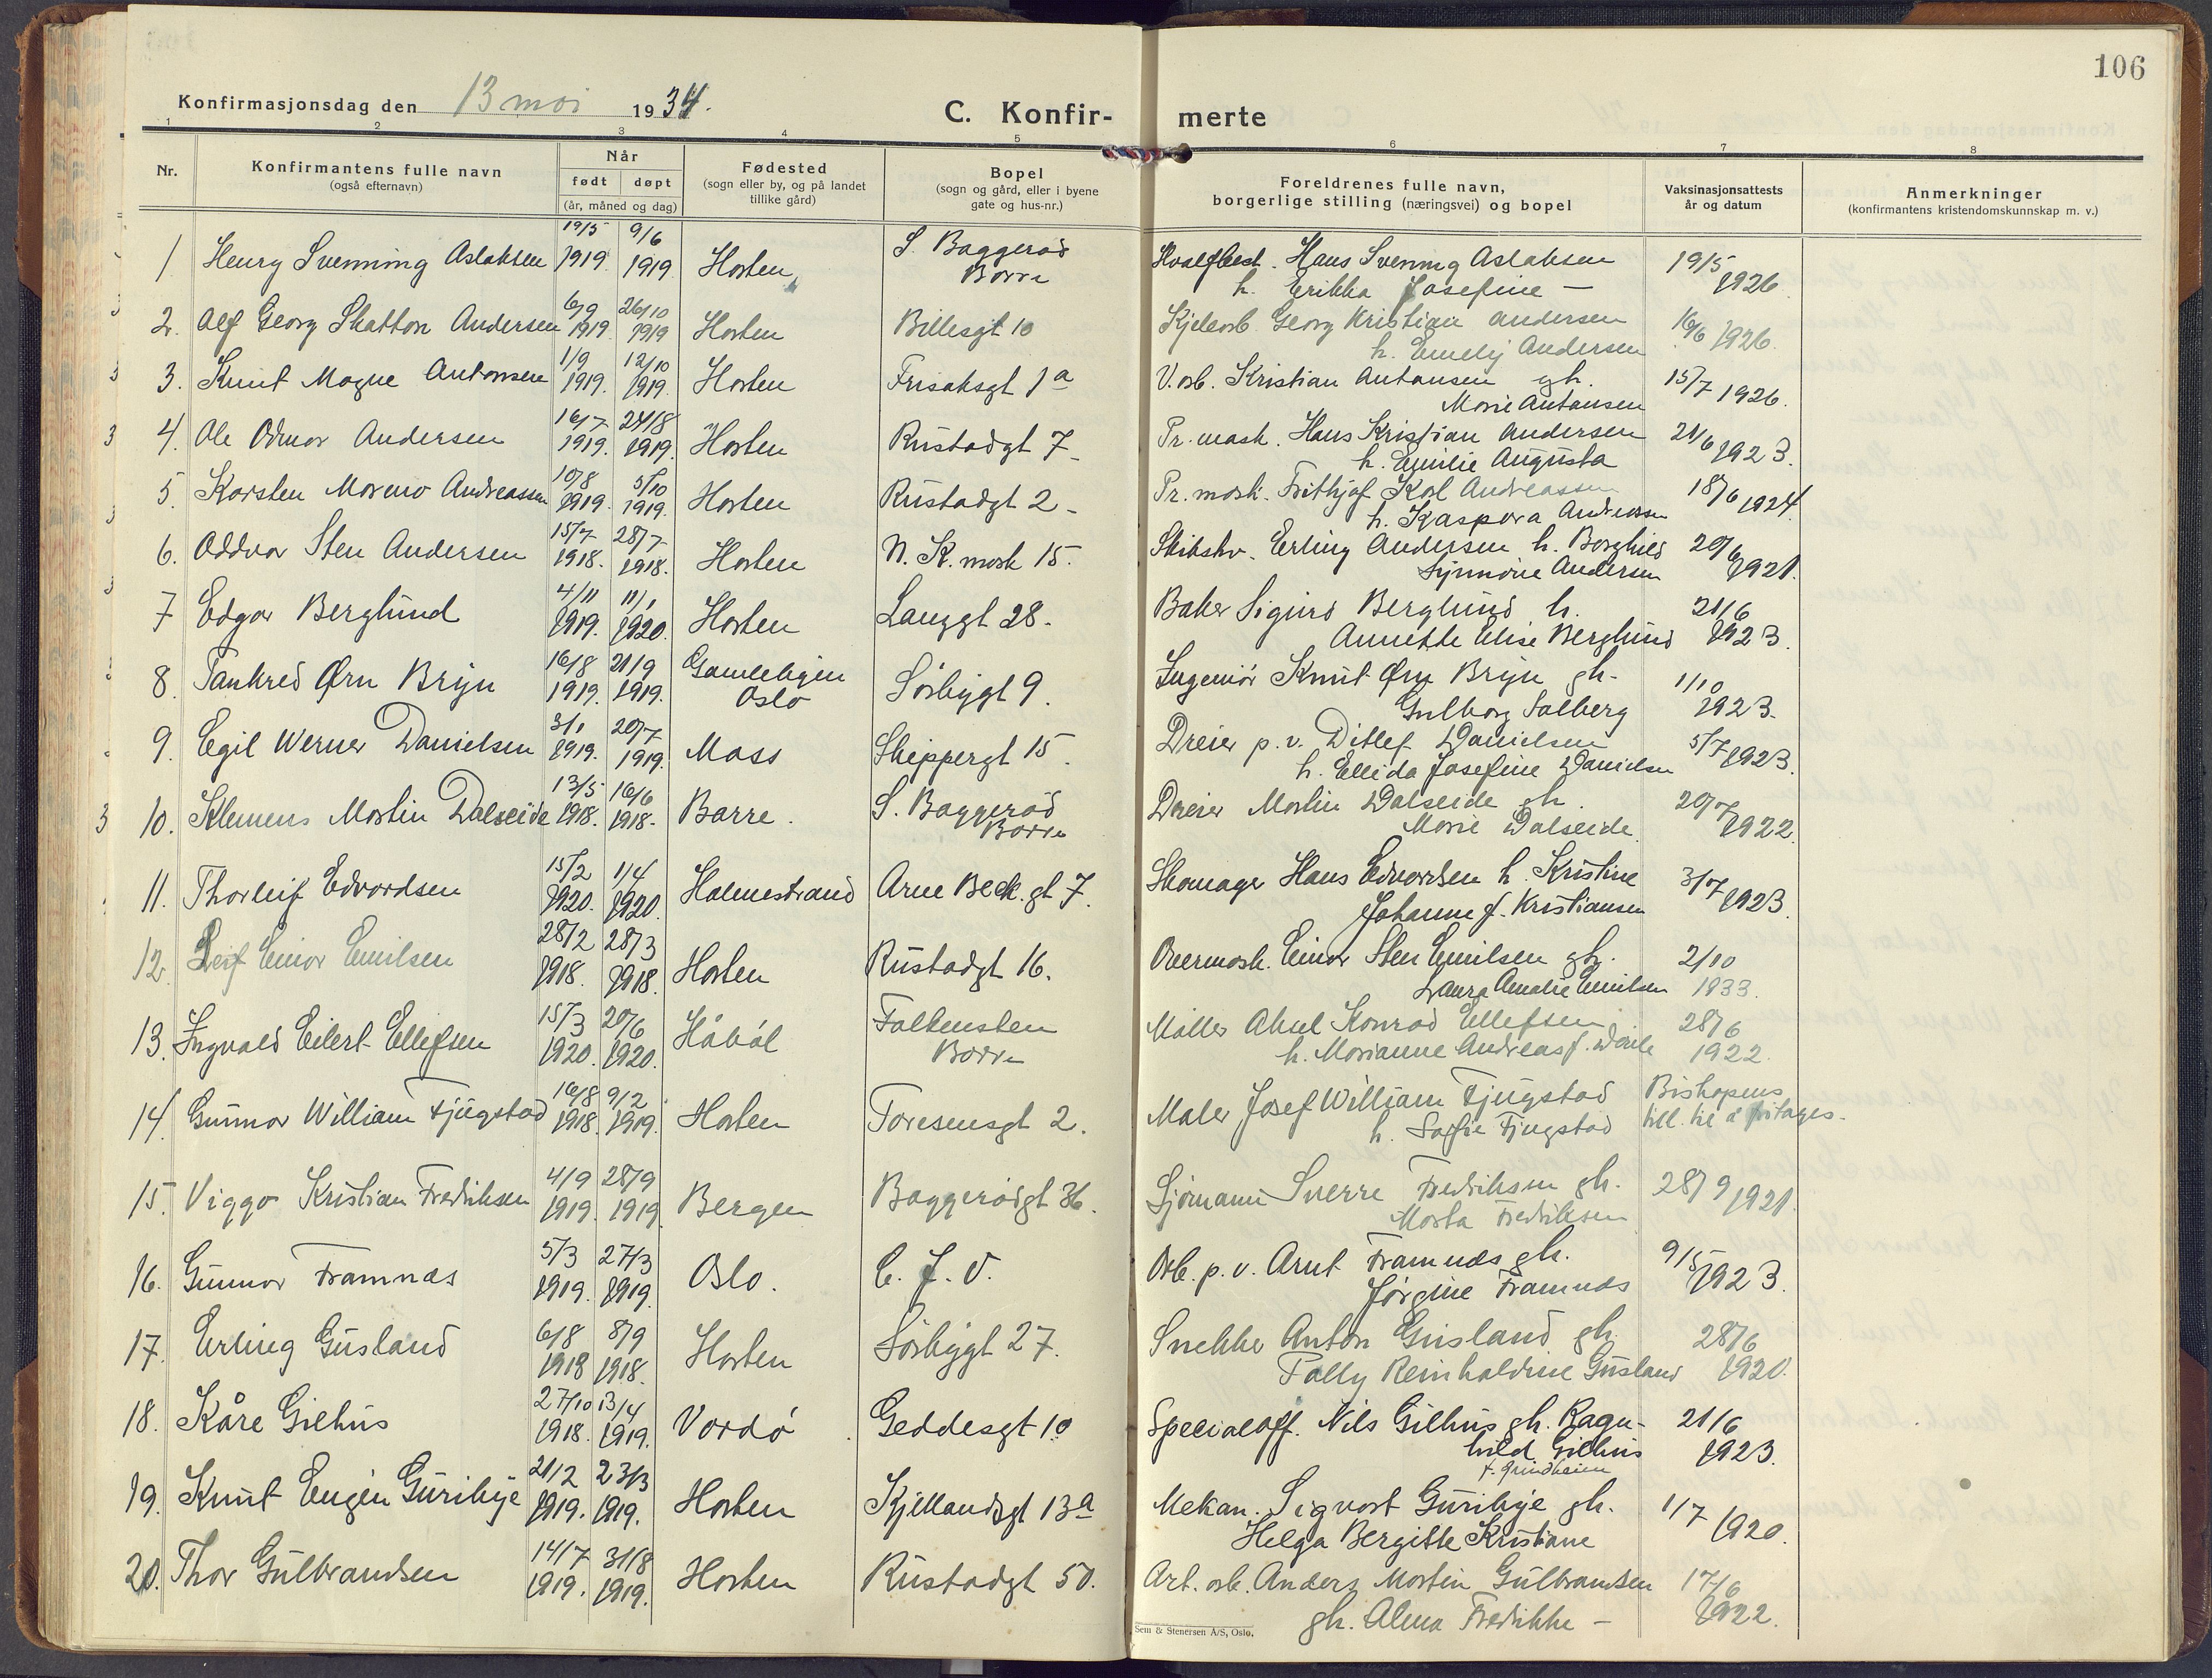 106
Konfirmasjonsdag den 13 mai 1934.
C. Konfir- merte
1 2 3 4 5 6 7 8
Nr.
Konfirmantens fulle navn
(også efternavn)
Når
født døpt
(år, måned og dag)
Fødested
(sogn eller by, og på landet
tillike gård)
Bopel
(sogn og gård, eller i byene
gate og hus-nr.)
Foreldrenes fulle navn,
borgerlige stilling (næringsvei) og bopel
Vaksinasjonsattests
år og datum
Anmerkninger
(konfirmantens kristendomskunnskap m. v.)
1 Henry Svenning Aslaksen 19/5 1919. 9/6 1919 Horten, S. Baggerød Borre Hans Svenning Aslaksen h. Erikka Josefine — 19/5 1926
2. Alf Georg Skatton Andersen 6/9 1919 26/10 1919 Horten Billesgt 10 Kjelarb. Georg Kristian Andersen h. Emely Andersen 16/6 1926.
3. Knut Magne Antonsen 1/9 1919. 12/10 1919. Horten Frisaksgt 1a V.arb. Kristian Antonsen gh. Marie Antonsen 15/7 1926.
4. Ole Odmar Andersen 16/7 1919. 24/8 1919. Horten Rustadgt 7 Pr. mask. Hans Kristian Andersen h. Emilie Augusta 21/6 1923.
5. Karsten Moreno Andreassen 10/8 1919. 5/10 1919. Horten Rustadgt 2 Pr. mask. Frithjof Karl Andreassen h. Kaspara Andreassen 18/6 1924.
6. Oddvar Sten Andersen 15/7 1918. 28/7 1918. Horten N. K. mosk 15. Erling Andersen h. Borghild Synnøve Andersen 20/6 1921.
7 Edgar Berglund 4/11 1919. 11/1 1920. Horten Langgt 28. Baker Sigurd Berglund h. Annette Elise Berglund 21/6 1923.
8. Tankred Ørn Bryn 16/8 1919. 21/9 1919. Gamlebyen Oslo Sørbygt 9. Ingeniør Knut Ørn Bryn gh. Gulborg Solberg 1/10 1923.
9. Egil Werner Danielsen 3/1 1919. 20/7 1919. Moss Skippergt 15. Dreier p. v. Ditlef Danielsen h. Ellida Josefine Danielsen 5/7 1923.
10. Klemens Martin Dalseide 13/5 1918. 16/6 1918. Borre. S. Baggerød Borre Dreier Martin Dalseide gh. Marie Dalseide 20/7 1922.
11. Thorleif Edvardsen 15/2 1920. 1/4 1920. Holmestrand Arne Beck. gt 7. Skomager Hans Edvardsen h. Kristine Johanne f. Kristiansen 3/7 1923.
12. Leif Einar Emilsen 28/2 1918. 28/3 1918. Horten Rustadgt 16. Overmask. Einar Sten Emilsen gh. Laura Amalie Emilsen 2/10 1933.
13. Ingvald Eilert Ellefsen 15/3 1920. 20/6 1920. Håbøl Falkensten Borre Møller Aksel Konrad Ellefsen h. Marianne Andreas f. 28/6 1922.
14. Gunnar William Fjugstad 16/8 1918. 9/2 1919. Horten Toresensgt 2. Maler Josef William Fjugstad h. Sofie Fjugstad Biskopens till. til å fritages.
15. Viggo Kristian Fredriksen 4/9 1919. 28/9 1919. Bergen Baggerødgt 36. Sjømann Sverre Fredriksen gh. Marta Fredriksen 28/9 1921.
16. Gunnar Framnæs 5/3 1919. 27/3 1919. Oslo. C. J. V. Arb. p. v. Arnt Framnæs gh. Jørgine Framnæs 9/5 1923.
17. Erling Gusland 6/8 1918 8/9 1918. Horten Sørbygt 27. Snekker Anton Gusland gh. Polly Reinholdine Gusland 28/6 1920.
18. Kåre Gilhus 27/10 1918. 13/4 1919. Vardø Geddesgt 10 Specialoff. Nils Gilhus gh. Ragn- hild Gilhus f. Grindheim 21/6 1923.
19. Knut Eugen Guribye 21/2 1919. 23/3 1919. Horten Kjellandsgt 13a Mekan. Sigvart Guribye gh. Helga Bergitte Kristiane 1/7 1920.
20. Thor Gulbrandsen 14/7 1919. 31/8 1919. Horten Rustadgt 50. Art. arb. Anders Martin Gulbrandsen gh. Alma Fredrikke — 17/6 1922.
Sem & Stenersen A/S, Oslo.